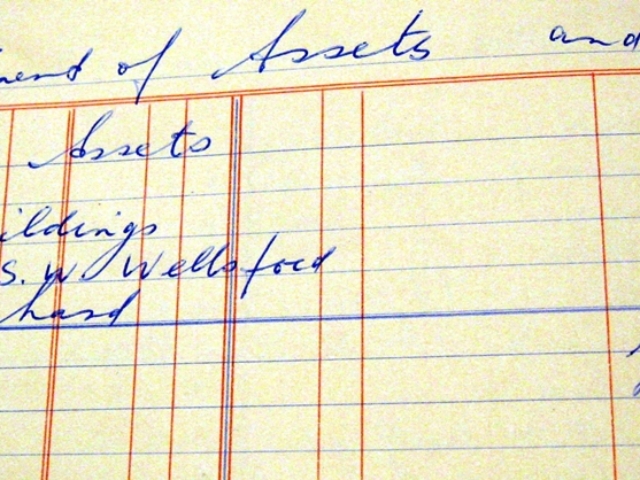 ment of Assets and
Assets
ildings
S. W. Wellsford
hand